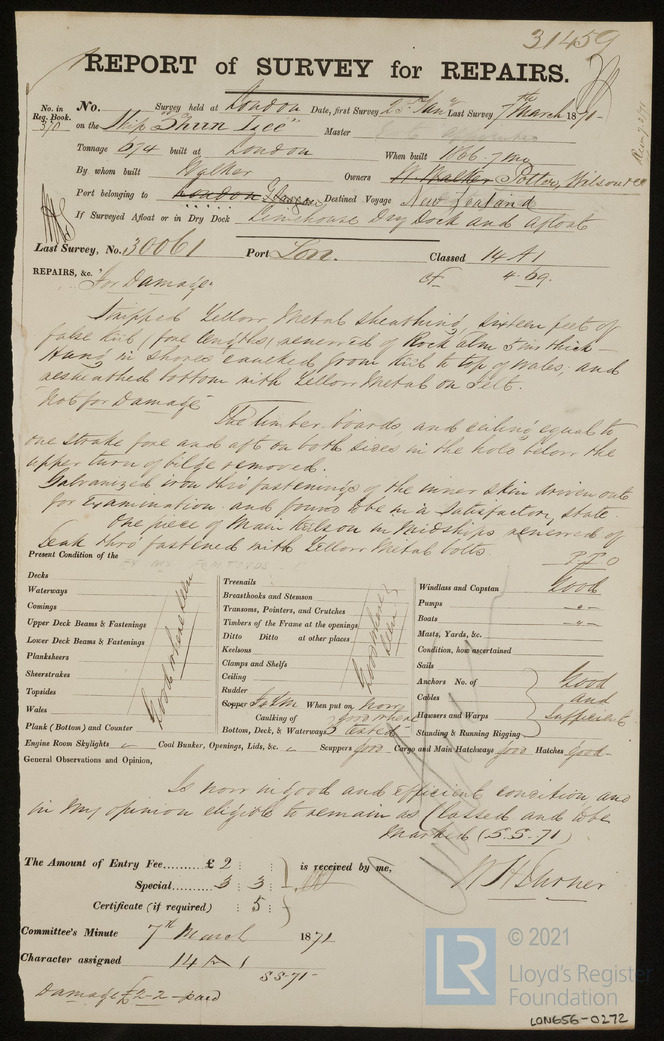 31459
REPORT of SURVEY for REPAIRS.
No. in Reg. Book. 370
No. Survey held at London Date, first Survey 23rd Jany Last Survey 7th March 1871
on the Ship Master
Tonnage 694 built at London When built 1866. 7 mo
By whom built Walker Owners H. Walker Potter, Wilson & Co
Port belonging to London Glasgow Destined Voyage New Zealand
If Surveyed Afloat or in Dry Dock Limehouse Dry Dock and afloat
Last Survey, No. 30061 Port Lon. Classed 14 A1
REPAIRS, &c. For Damage. 4.69.
Stripped Yellow Metal sheathing, sixteen feet of
false keel (fore lengths) renewed of Rock Elm 5 in thick
Hung in shores caulked from keel to top of wales, and
resheathed bottom with Yellow Metal on Felt.
Not for Damage
The limber boards, and ceiling equal to
one strake fore and aft on both sides in the hold below the
upper turn of bilge removed.
Galvanized iron thro' fastenings of the inner skin driven out
for Examination and found to be in a Satisfactory state.
One piece of Main Keelson in Midships renewed of
Teak thro' fastened with Yellow Metal bolts.
P.T.O
Present Condition of the
Decks
Waterways
Comings
Upper Deck Beams & Fastenings
Lower Deck Beams & Fastenings
Planksheers
Sheerstrakes
Topsides
Wales
Plank (Bottom) and Counter
Good where seen
Treenails
Breasthooks and Stemson
Transoms, Pointers, and Crutches
Timbers of the Frame at the openings
Ditto Ditto at other places
Keelsons
Clamps and Shelfs
Ceiling
Rudder
Good where seen
Copper Felt & YM When put on, now
Caulking of Bottom, Deck, & Waterways good where tested
Windlass and Capstan Good
Pumps -"-
Boats -"-
Masts, Yards, &c.
Condition, how ascertained
Sails
Anchors No. of Good
Cables and
Hawsers and Warps Sufficient
Standing & Running Rigging
Engine Room Skylights " Coal Bunker, Openings, Lids, &c. " Scuppers good Cargo and Main Hatchways good Hatches good
General Observations and Opinion,
Is now in good and efficient condition and
in my opinion eligible to remain as Classed and to be
Marked (S.S.71)
The Amount of Entry Fee......... £ 2 : : is received by me,
Special......... 3 : 3 : -
Certificate (if required) : 5 :
Committee's Minute 7th March 1871
Character assigned 14 A 1
SS71-
Damage £2-2-paid
LR © 2021
Lloyd's Register
Foundation
LON656-0272